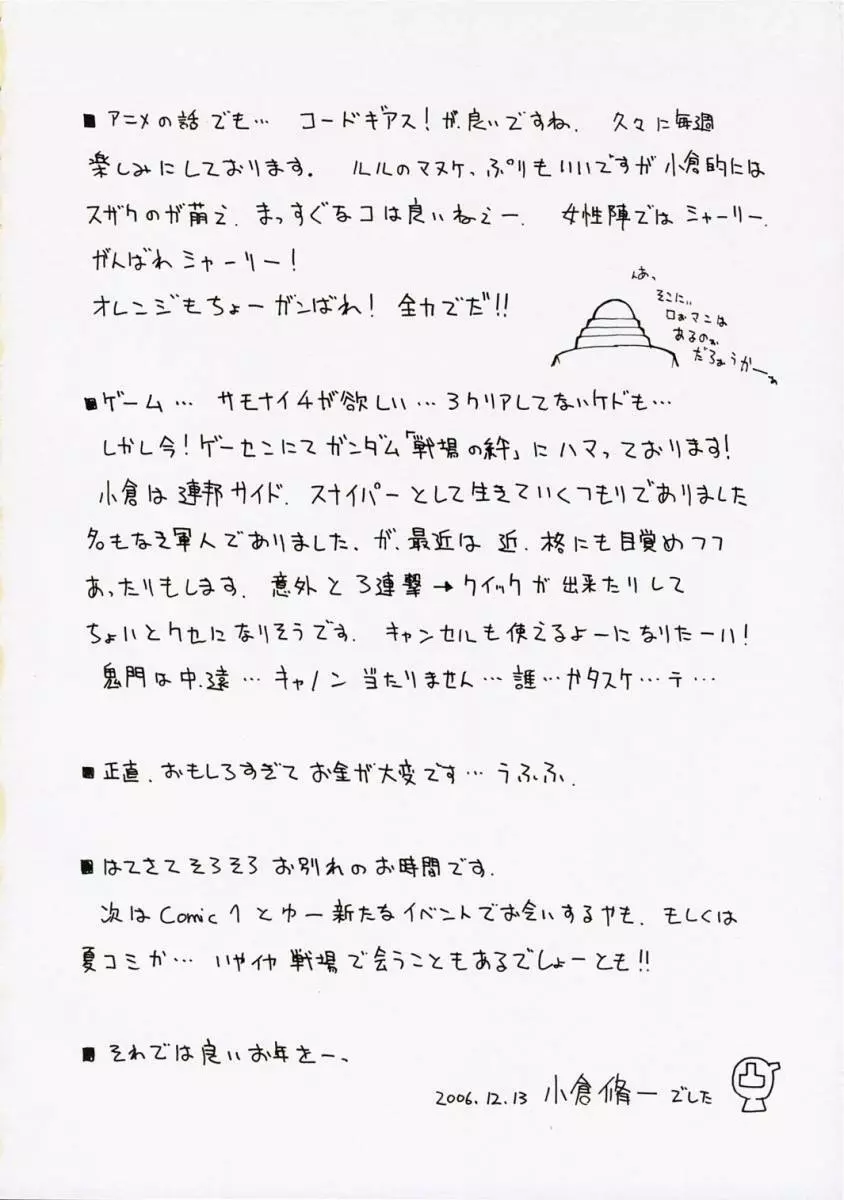 ■アニメの話でも… コードギアス!が、良いですね. 久々に毎週
楽しみにしております. ルルのマヌケ、ぷりもいいですが小倉的には
スザクのが萌え. まっすぐなコは良いねぇー. 女性陣ではシャーリー.
がんばれシャーリー!
オレンジもちょーガンばれ! 全力でだ!!
んあ、
そこにぃ
ロぉマンは
あるのぉ
だろぉうかーぁ
■ゲーム… サモナイ4が欲しい…3クリアしてないケドも…
しかし今!ゲーセンにてガンダム「戦場の絆」にハマっております!
小倉は連邦サイド. スナイパーとして生きていくつもりでありました
名もなき軍人でありました. が、最近は 近、格にも目覚めつつ
あったりもします. 意外と3連撃→クイックが出来たりして
ちょいとクセになりそうです. キャンセルも使えるよーになりたーい!
鬼門は中、遠… キャノン当たりません…誰…かタスケ…テ…
■正直、おもしろすぎてお金が大変です…うふふ.
■はてさてそろそろお別れのお時間です.
次はComic1とゆー新たなイベントでお会いするやも. もしくは
夏コミか… いやイヤ戦場で会うこともあるでしょーとも!!
■それでは良いお年をー、
2006.12.13 小倉脩一でした